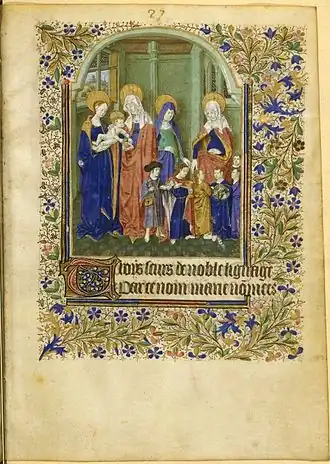 27
Trois seurs de noble lignage
Par ce nom marie nommees